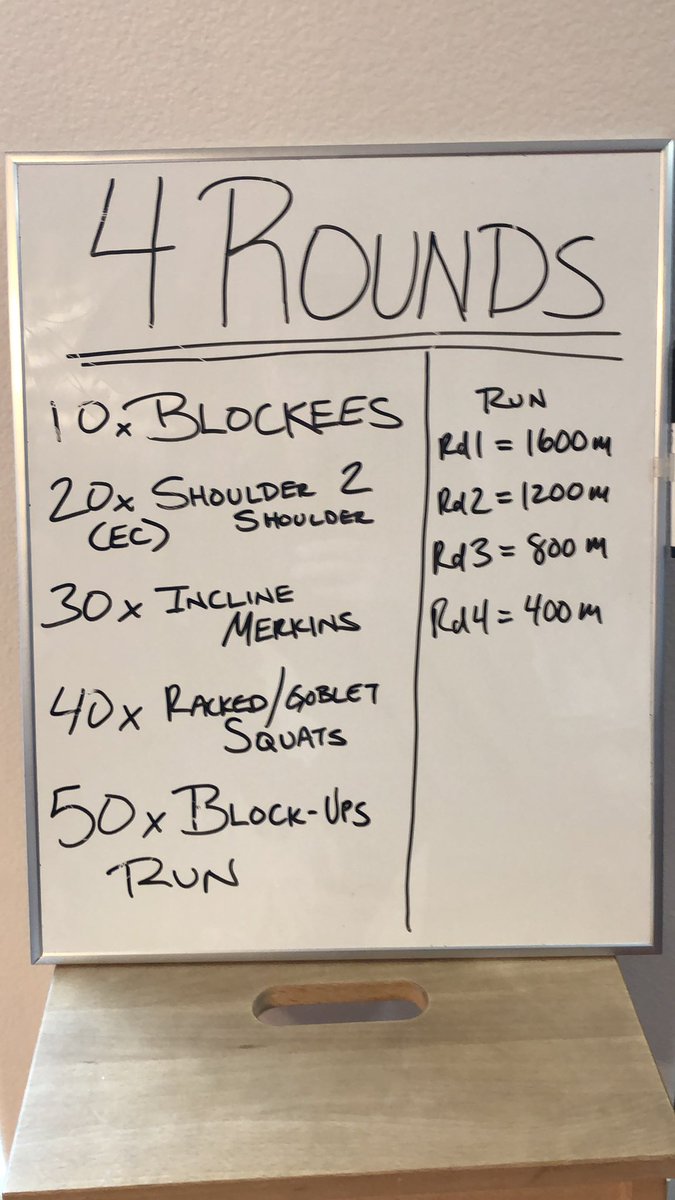 4 ROUNDS
10x BLOCKEES
20x SHOULDER 2
(EC) SHOULDER
30x INCLINE
MERKINS
40x RACKED/GOBLET
SQUATS
50x BLOCK-UPS
RUN
RUN
Rd1 = 1600m
Rd2 = 1200m
Rd3 = 800m
Rd4 = 400m